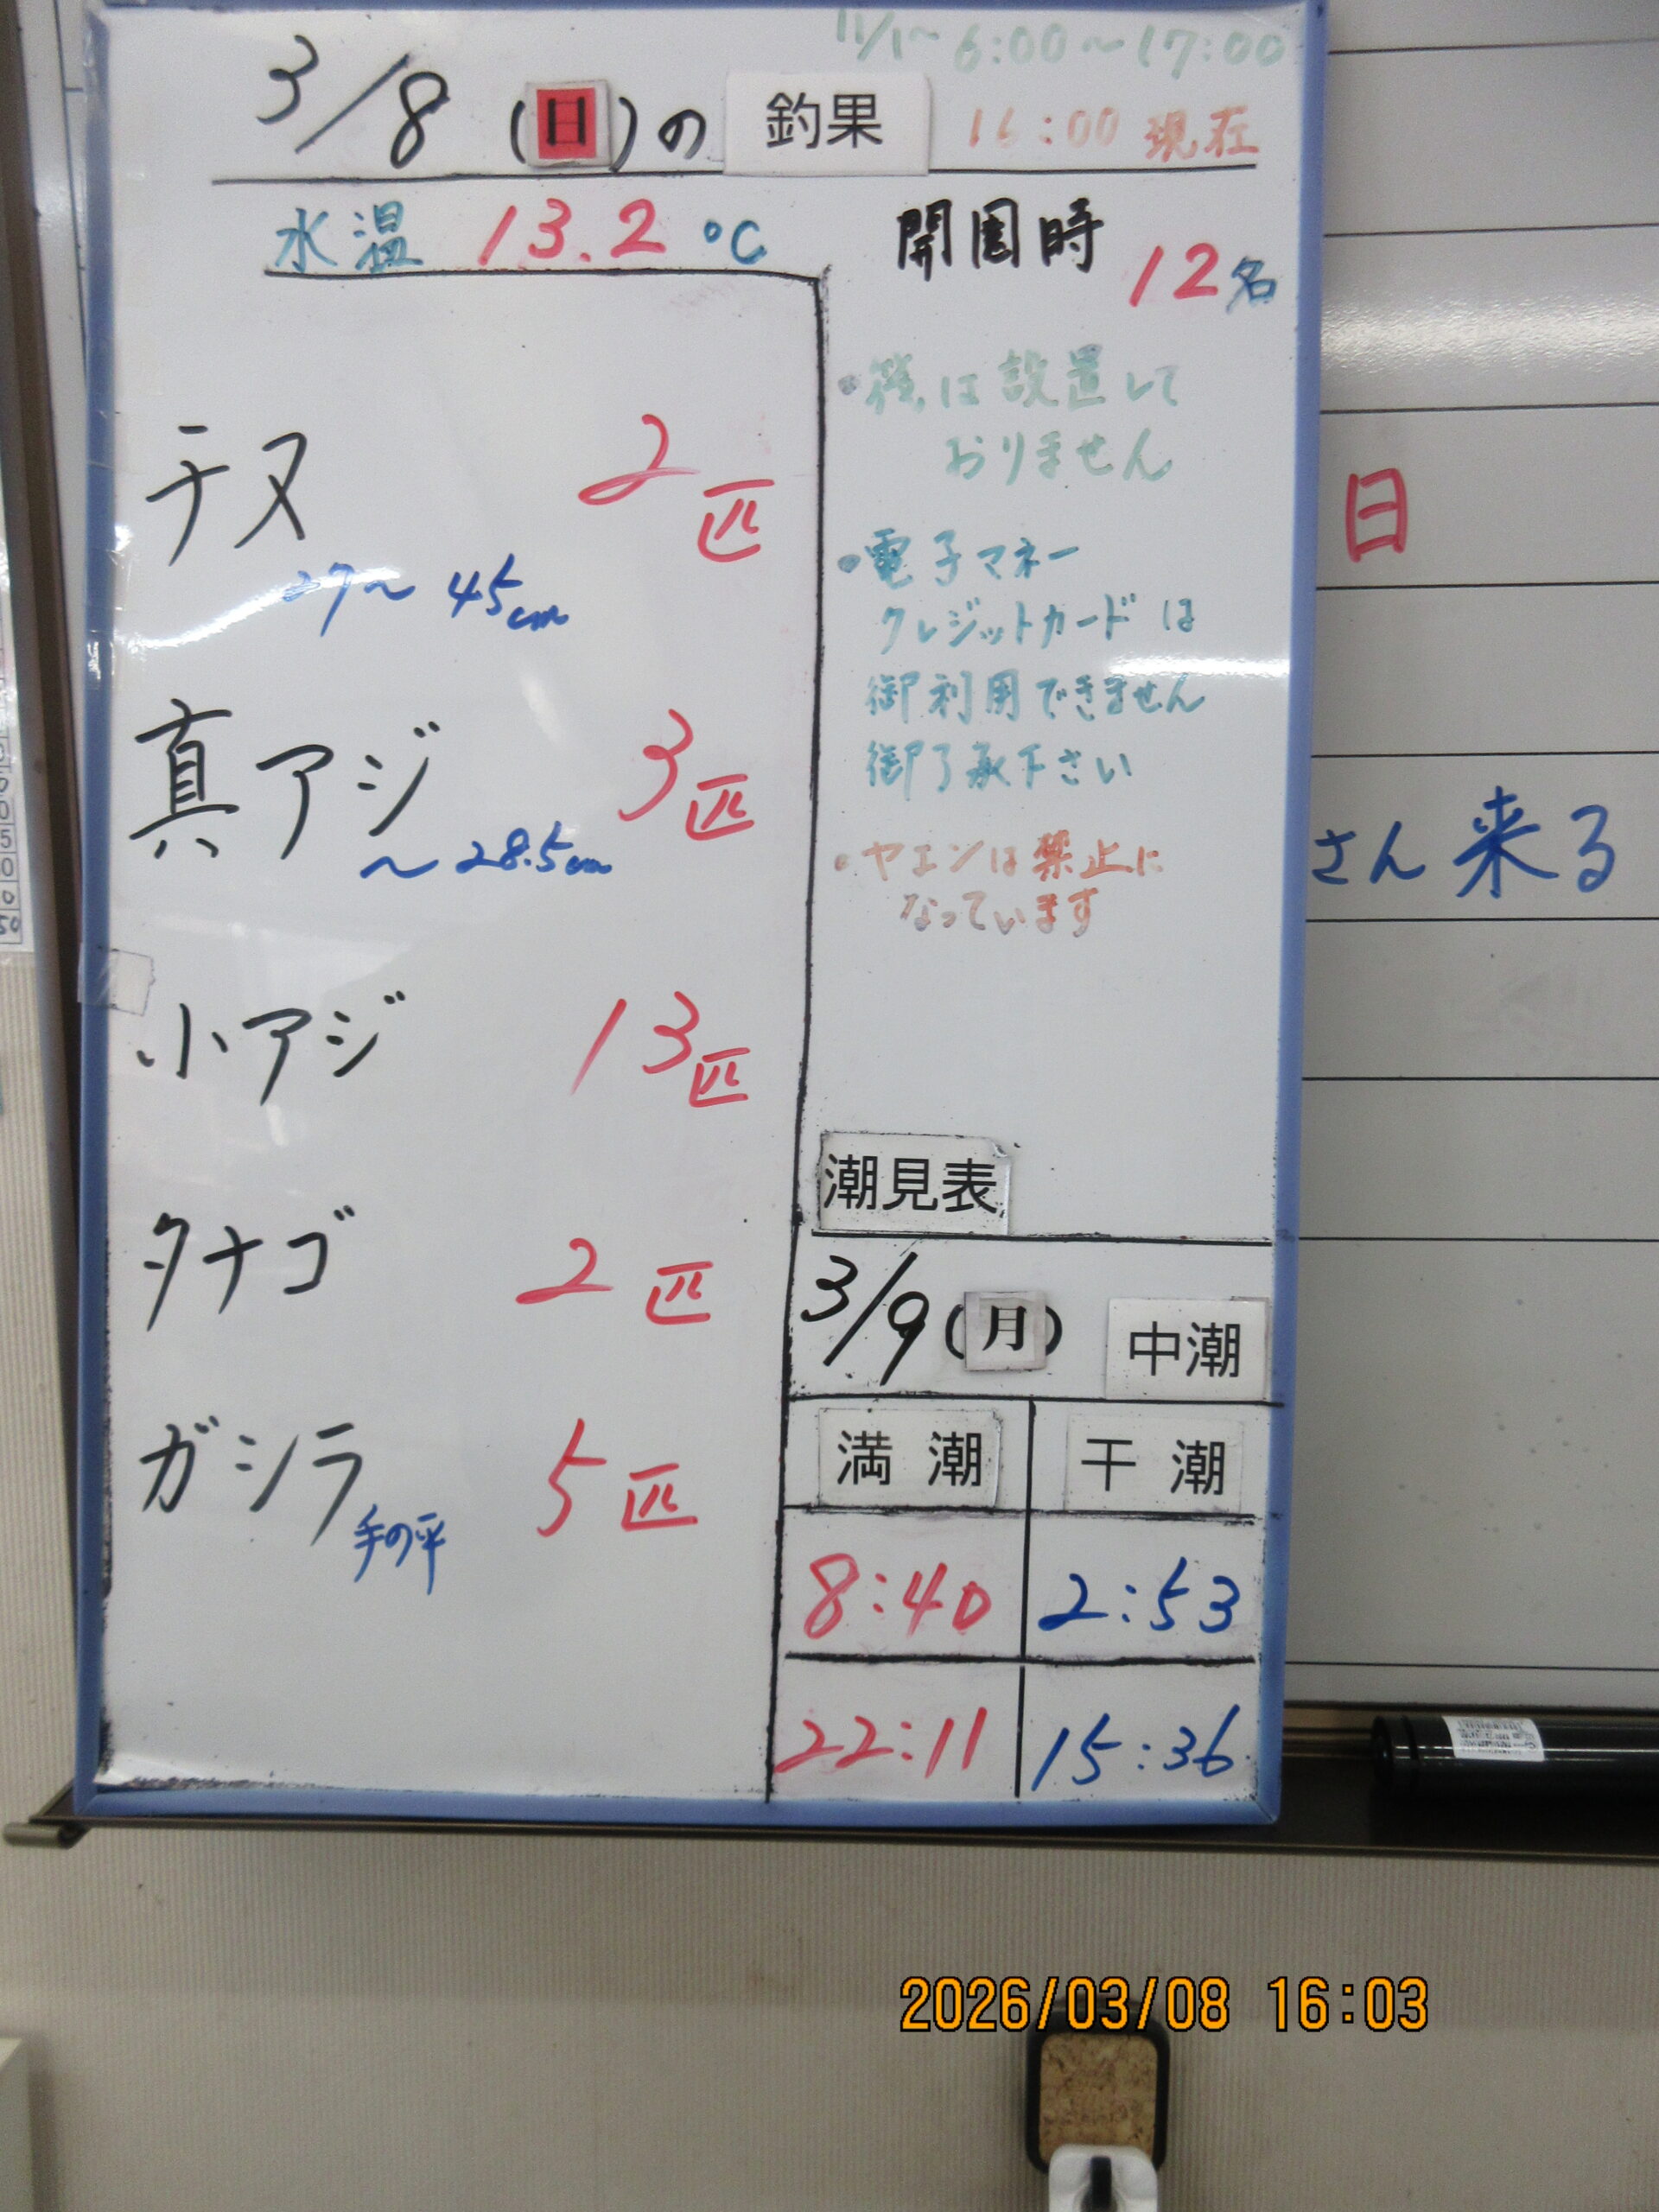 11/1～ 6:00～17:00
3/8 (日)の 釣果 16:00 現在
水温 13.2 ℃
開園時 12名
チヌ 2匹
27～45cm
真アジ 3匹
～28.5cm
小アジ 13匹
タナゴ 2匹
ガシラ 5匹
手の平
は設置して
おりません
・電子マネー
クレジットカードは
御利用できません
御了承下さい
・ヤエンは禁止に
なっています
潮見表
3/9(月) 中潮
満潮 干潮
8:40 2:53
22:11 15:36
日
さん来る
2026/03/08 16:03